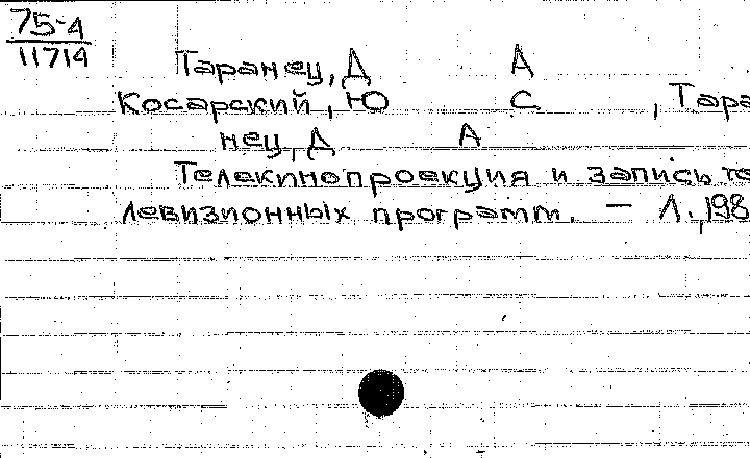 75-4
11714
Таранец, Д А
Косарский, Ю С , Тара
нец, Д А
Телекинопроекция и запись те
левизионных программ. — Л., 198